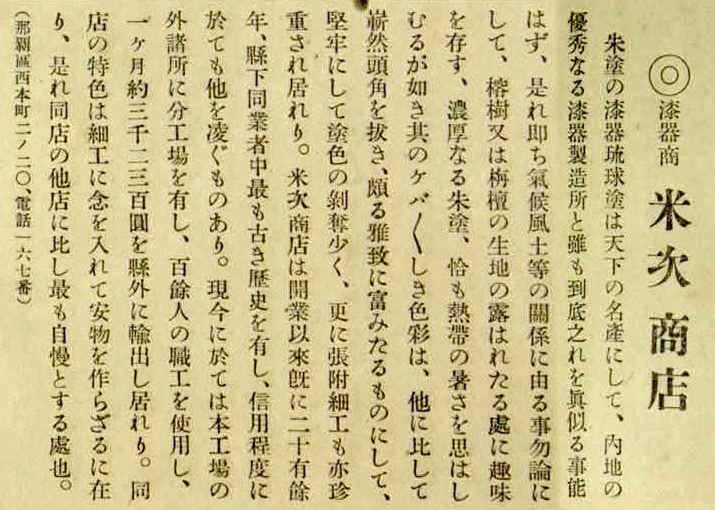 ◎漆器商 米次商店
朱塗の漆器琉球塗は天下の名產にして、內地の
優秀なる漆器製造所と雖も到底之れを眞似る事能
はず、是れ卽ち氣候風土等の關係に由る事勿論に
して、榕樹又は栴檀の生地の露はれたる處に趣味
を存す、濃厚なる朱塗、恰も熱帶の暑さを思はし
むるが如き其のケバ〱しき色彩は、他に比して
嶄然頭角を拔き、頗る雅致に富みたるものにして、
堅牢にして塗色の剝奪少く、更に張附細工も亦珍
重され居れり。米次商店は開業以來旣に二十有餘
年、縣下同業者中最も古き歷史を有し、信用程度に
於ても他を凌ぐものあり。現今に於ては本工場の
外諸所に分工場を有し、百餘人の職工を使用し、
一ケ月約三千二三百圓を縣外に輸出し居れり。同
店の特色は細工に念を入れて安物を作らざるに在
り、是れ同店の他店に比し最も自慢とする處也。
(那覇區西本町二ノ二〇、電話一六七番)